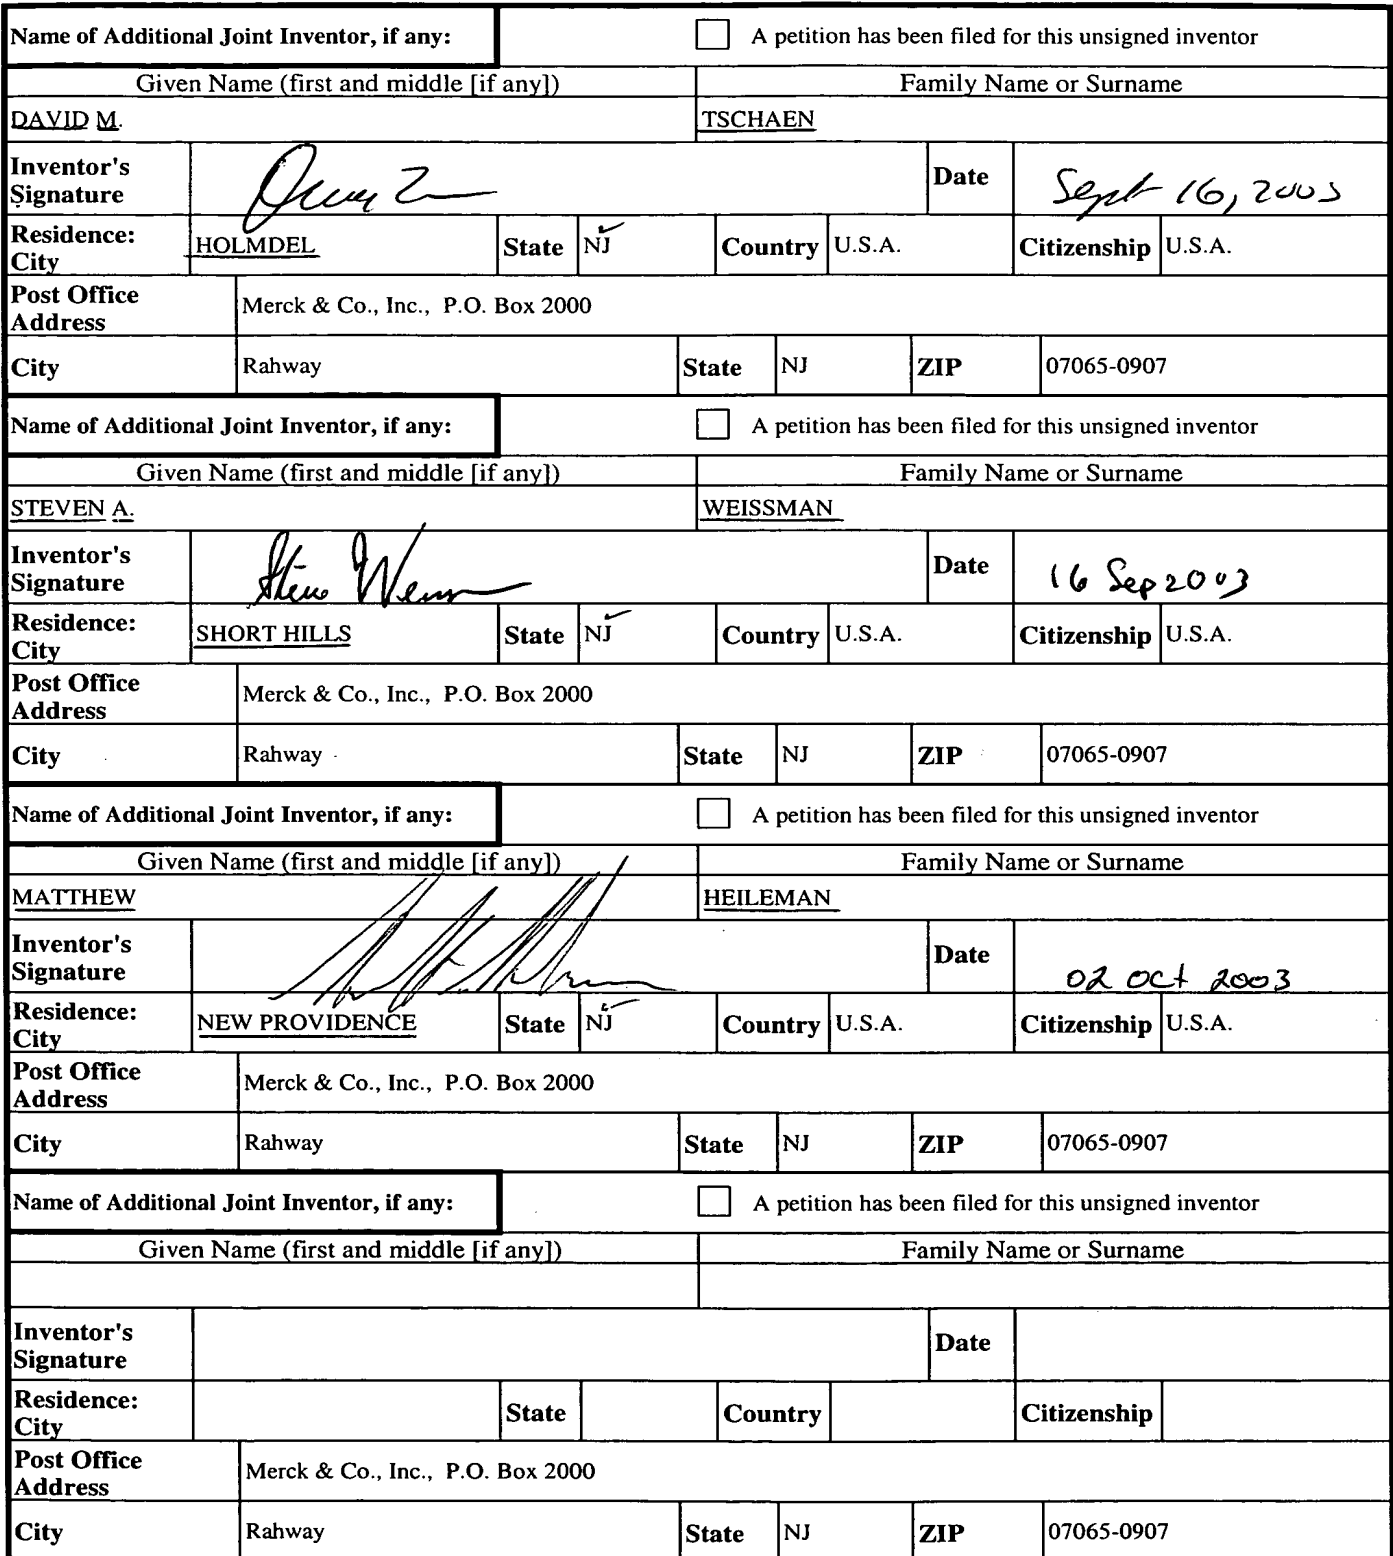 Name of Additional Joint Inventor, if any: A petition has been filed for this unsigned inventor
Given Name (first and middle [if any]) Family Name or Surname
DAVID M. TSCHAEN
Inventor's Signature Date Sept 16, 2003
Residence: City HOLMDEL State NJ Country U.S.A. Citizenship U.S.A.
Post Office Address Merck & Co., Inc., P.O. Box 2000
City Rahway State NJ ZIP 07065-0907
Name of Additional Joint Inventor, if any: A petition has been filed for this unsigned inventor
Given Name (first and middle [if any]) Family Name or Surname
STEVEN A. WEISSMAN
Inventor's Signature Date 16 Sep 2003
Residence: City SHORT HILLS State NJ Country U.S.A. Citizenship U.S.A.
Post Office Address Merck & Co., Inc., P.O. Box 2000
City Rahway State NJ ZIP 07065-0907
Name of Additional Joint Inventor, if any: A petition has been filed for this unsigned inventor
Given Name (first and middle [if any]) Family Name or Surname
MATTHEW HEILEMAN
Inventor's Signature Date 02 Oct 2003
Residence: City NEW PROVIDENCE State NJ Country U.S.A. Citizenship U.S.A.
Post Office Address Merck & Co., Inc., P.O. Box 2000
City Rahway State NJ ZIP 07065-0907
Name of Additional Joint Inventor, if any: A petition has been filed for this unsigned inventor
Given Name (first and middle [if any]) Family Name or Surname
Inventor's Signature Date
Residence: City State Country Citizenship
Post Office Address Merck & Co., Inc., P.O. Box 2000
City Rahway State NJ ZIP 07065-0907